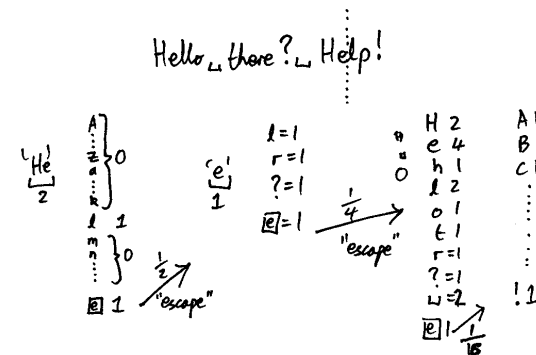 Hello␣there?␣Help!
'He'
2
A
z
a
k
0
l 1
m
n
0
e 1
1/2
"escape"
'e'
1
l=1
r=1
?=1
e=1
1/4
"escape"
" "
0
H 2
e 4
h 1
l 2
o 1
t 1
r=1
?=1
␣=2
e 1
1/16
A 1
B
C 1
! 1